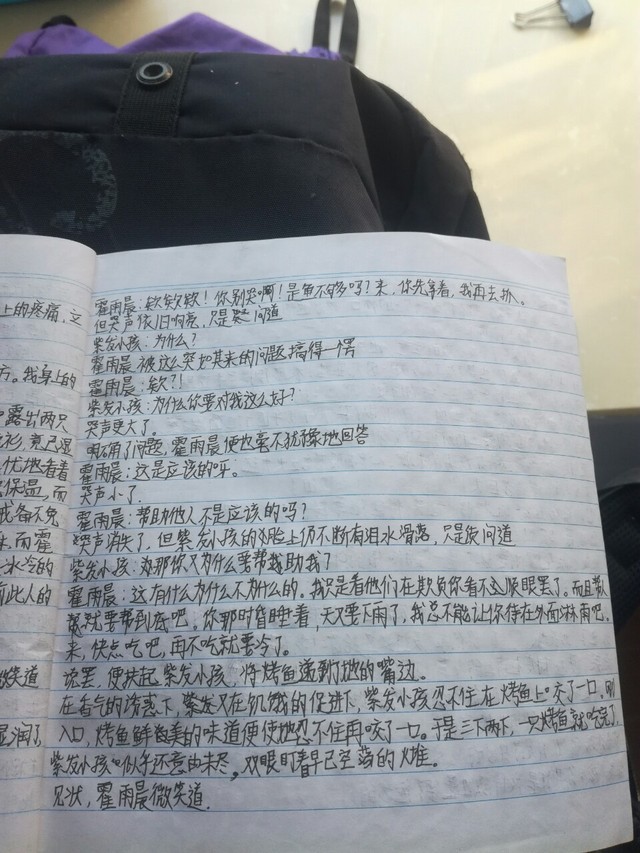 上的疼痛,立
方。我身上的
露出两只
衫,竟已湿
优地看着
保温,而
戒备不免
冰冷的
此人的
笑道
湿润了,
霍雨晨:欸欸欸!你别哭啊!是鱼不够多吗?来,你先拿着,我再去扒。
但哭声依旧响亮,只是反问道
紫发小孩:为什么?
霍雨晨被这么突如其来的问题搞得一愣
霍雨晨:欸?!
紫发小孩:为什么你要对我这么好?
哭声更大了。
明确了问题,霍雨晨便也毫不犹豫地回答
霍雨晨:这是应该的呀。
哭声小了.
霍雨晨:帮助他人不是应该的吗?
哭声消失了,但紫发小孩的脸上仍不断有泪水滑落,只是反问道
紫发小孩:那你又为什么要帮助我?
霍雨晨:这有什么为什么不为什么的。我只是看他们在欺负你看不顺眼罢了。而且帮人
就要帮到底吧。你那时昏睡着,天又要下雨了,我总不能让你待在外面淋雨吧。
来,快点吃吧,再不吃就要冷了。
说罢,便扶起紫发小孩,将烤鱼递到她的嘴边。
在香气的诱惑下,又在饥饿的促进下,紫发小孩忍不住在烤鱼上咬了一口,刚
入口,烤鱼鲜美的味道便使她忍不住再咬了一口。于是三下两下,一只烤鱼就吃完了,
紫发小孩似乎还意由未尽,双眼盯着早已空荡的火堆。
见状,霍雨晨微笑道.